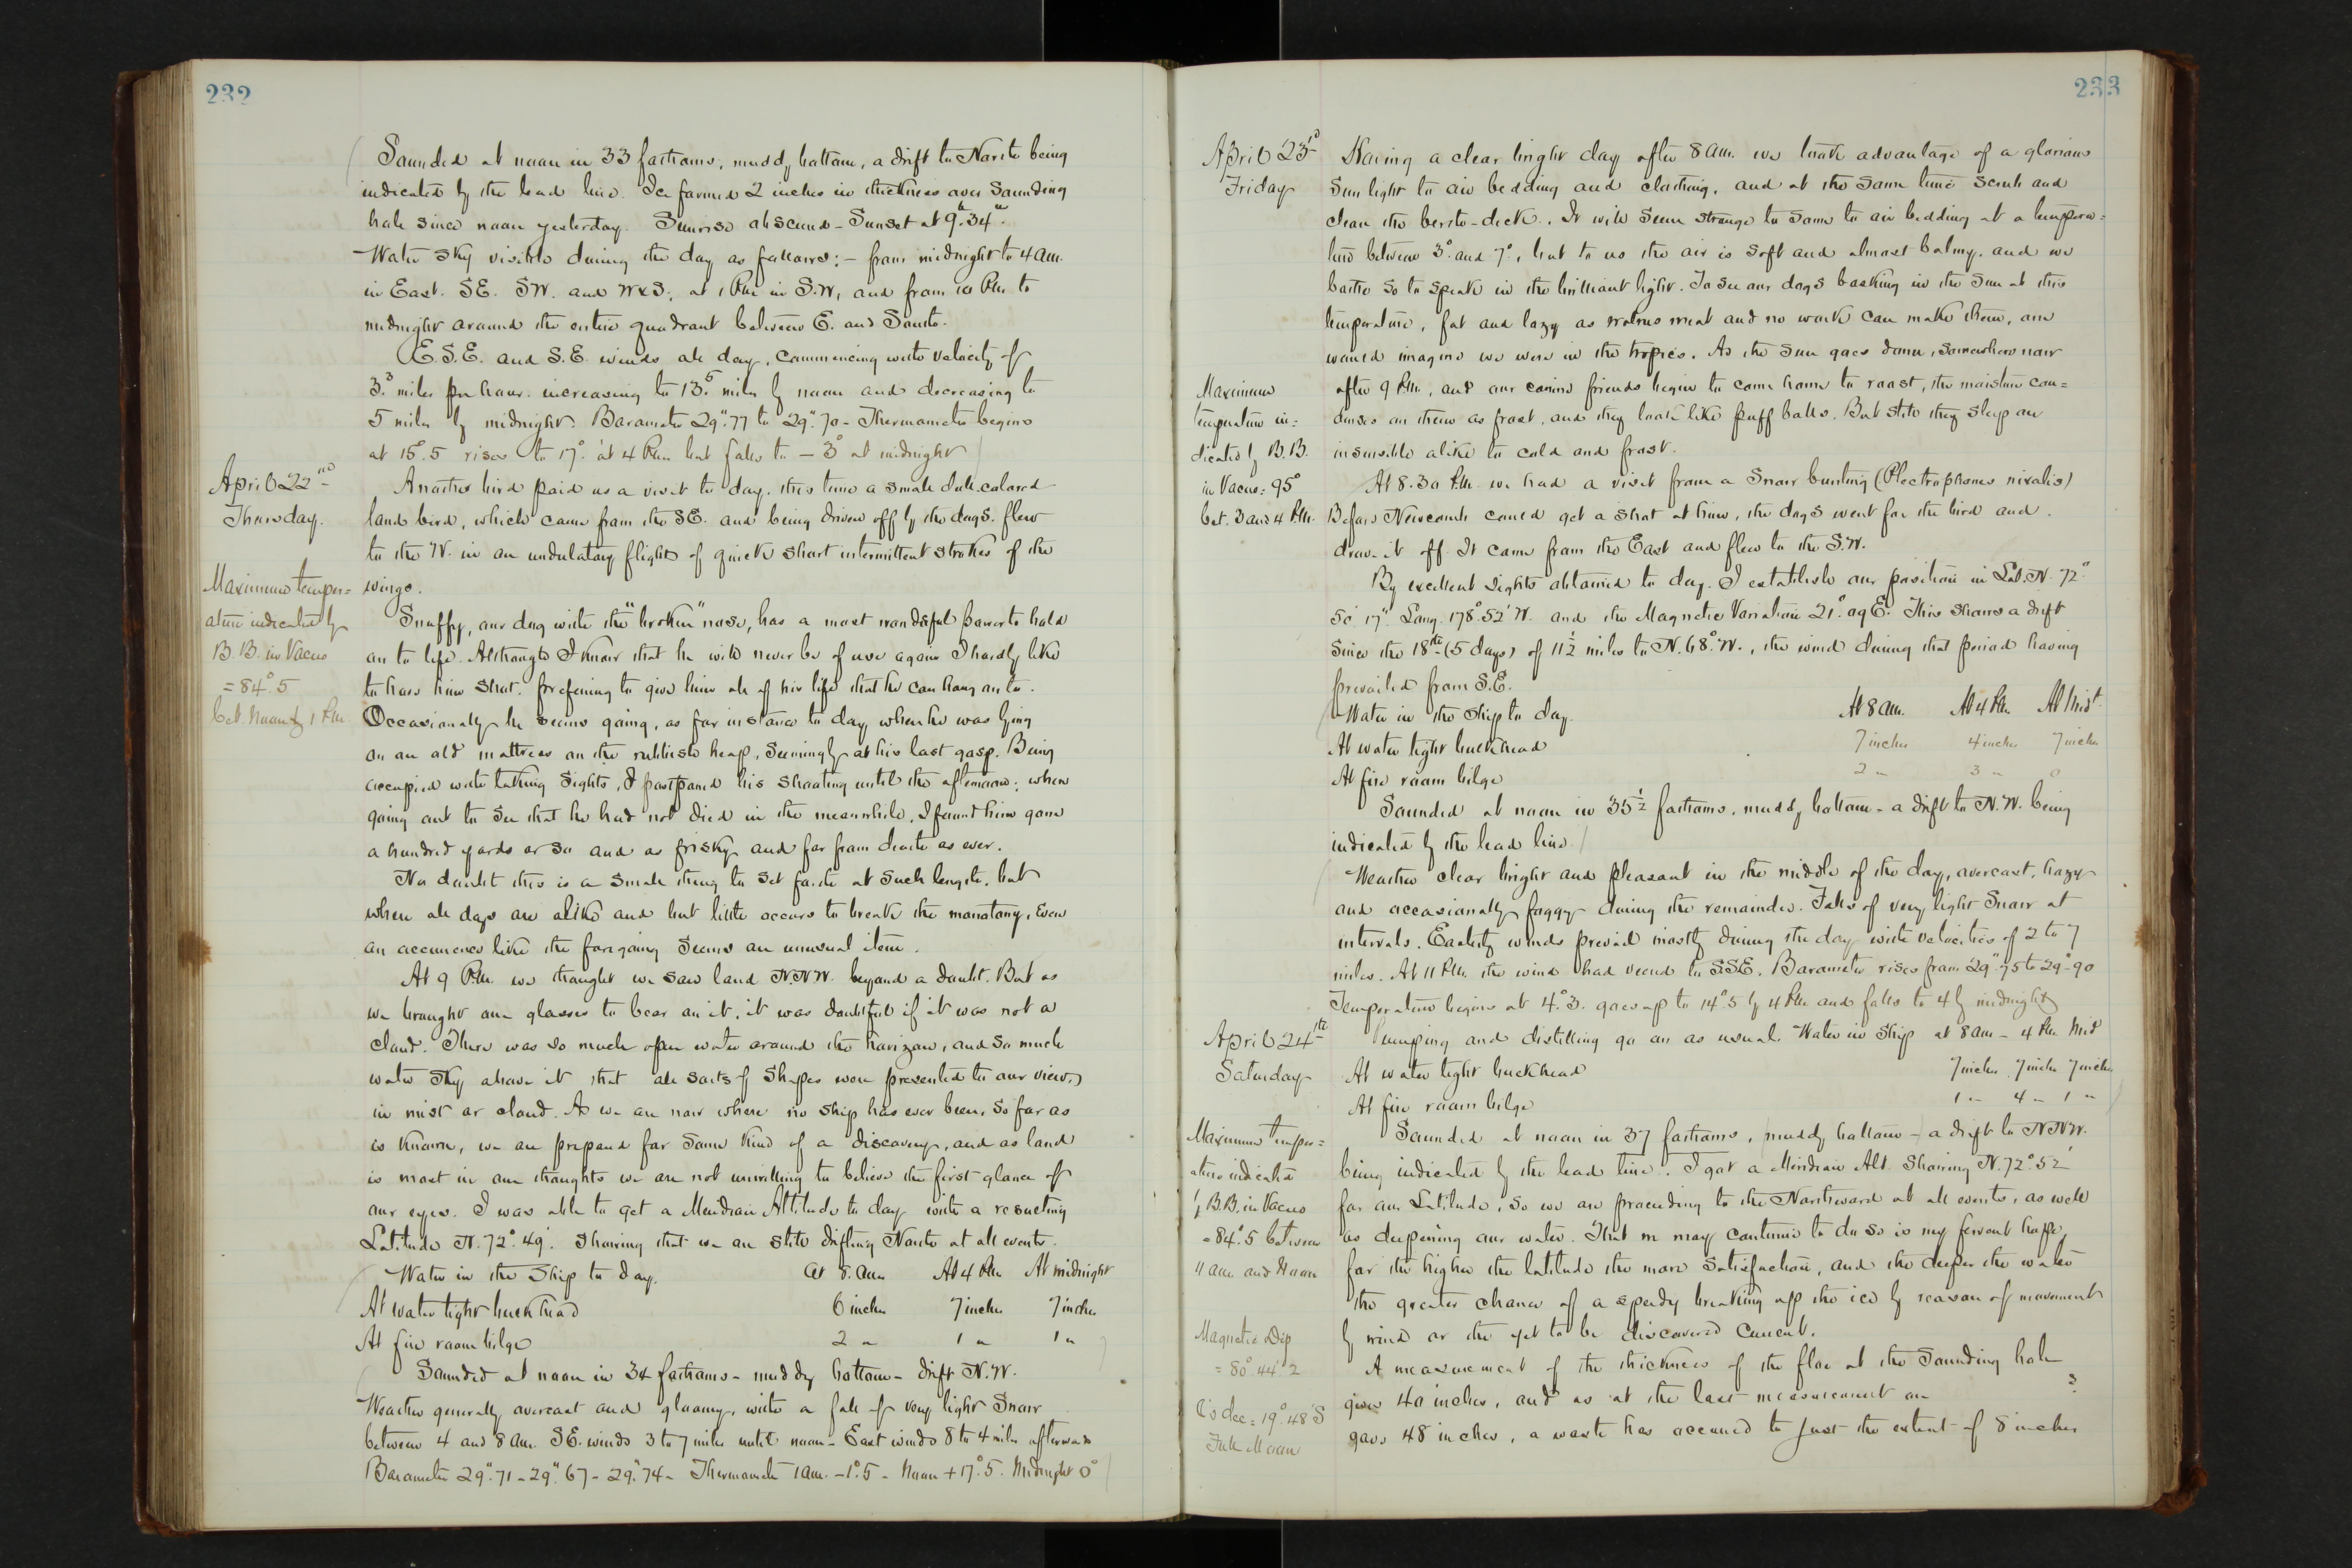 232
Sounded at noon in 33 fathoms, muddy bottom, a drift to North being
indicated by the lead line. Ice formed 2 inches in thickness over Sounding
hole since noon yesterday. Sunrise obscured - Sunset at 9h.34m.
Water Sky visible during the day as follows: - from midnight to 4 am.
in East. SE. SW. and WxS, at 1 P.M. in S.W, and from 10 P.M. to
midnight around the entire quadrant between E. and South.
E.S.E. and S.E. winds all day, commencing with velocity of
3.3 miles per hour. increasing to 13.5 miles by noon and decreasing to
5 miles by midnight. Barometer 29".77 to 29".70 - Thermometer begins
at 15°.5 rises to 17° at 4 P.M. but falls to - 3° at midnight
April 22nd
Thursday.
Another bird paid us a visit to day, this time a small dull colored
land bird, which came from the SE. and being driven off by the dogs. flew
to the W. in an undulatory flight of quick short intermittent strokes of the
wings.
Maximum temper=
ature indicated by
B.B. in Vacuo
= 84°.5
bet. Noon & 1 P.M.
Snuffy, our dog with the "broken" nose, has a most wonderful power to hold
on to life. Although I know that he will never be of use again I hardly like
to have him shot, preferring to give him all of his life that he can hang on to.
Occasionally he seems going, as for instance to day, when he was lying
on an old mattress on the rubbish heap, seemingly at his last gasp. Being
occupied with taking Sights, I postponed his shooting until the afternoon; when
going out to see that he had not died in the meanwhile, I found him gone
a hundred yards or so and as frisky and far from death as ever.
No doubt this is a small thing to set forth at such length, but
where all days are alike and but little occurs to break the monotony, even
an occurrence like the foregoing seems an unusual item.
At 9 P.M. we thought we saw land N.N.W. beyond a doubt. But as
we brought our glasses to bear on it, it was doubtful if it was not a
cloud. There was so much open water around the horizon, and so much
water Sky above it that all sorts of Shapes were presented to our view,
in mist or cloud. As we are now where no Ship has ever been, so far as
is known, we are prepared for some kind of a discovery, and as land
is most in our thoughts we are not unwilling to believe the first glance of
our eyes. I was able to get a Meridian Altitude to day with a resulting
Latitude N. 72°.49'. Showing that we are still drifting North at all events.
Water in the Ship to day. at 8. am At 4 P.M. At midnight
At water tight bulkhead 6 inches 7 inches 7 inches
At fire room bilge 2 " 1 " 1 "
Sounded at noon in 34 fathoms - muddy bottom - drift N.W.
Weather generally overcast and gloomy, with a fall of very light Snow
between 4 and 8 am. SE. winds 3 to 7 miles until noon - East winds 8 to 4 miles afterwards
Barometer 29".71 - 29".67 - 29".74 - Thermometer 1 am. - 1°.5 - Noon + 17°.5. Midnight 0°
233
April 23d
Friday
Having a clear bright day after 8 am. we took advantage of a glorious
Sun light to air bedding and clothing, and at the same time scrub and
clean the berth-deck. It will seem strange to some to air bedding at a tempera=
ture between 3° and 7°, but to us the air is soft and almost balmy, and we
bathe so to speak in the brilliant light. To see our dogs basking in the Sun at this
temperature, fat and lazy as walrus meat and no work can make them, one
would imagine we were in the tropics. As the Sun goes down, somewhere now
after 9 P.M., and our canine friends begin to come home to roost, the moisture con=
denses on them as frost, and they look like puff balls. But still they sleep on
insensible alike to cold and frost.
Maximum
temperature in=
dicated by B.B.
in Vacuo = 95°
bet. 3 and 4 P.M.
At 8.30 P.M. we had a visit from a Snow bunting (Plectrophanes nivalis)
Before Newcomb could get a shot at him, the dogs went for the bird and
drove it off. It came from the East and flew to the S.W.
By excellent sights obtained to day. I establish our position in Lat. N. 72°
50' 17" Long. 178°.52' W. and the Magnetic Variation 21°.09 E. This shows a drift
since the 18th (5 days) of 11½ miles to N. 68° W., the wind during that period having
prevailed from S.E.
Water in the Ship to day. At 8 am. At 4 P.M. At Mid't.
At water tight bulkhead 7 inches 4 inches 7 inches
At fire room bilge 2 " 3 " 0
Sounded at noon in 35½ fathoms, muddy bottom - a drift to N.W. being
indicated by the lead line.
Weather clear bright and pleasant in the middle of the day, overcast, hazy
and occasionally foggy during the remainder. Falls of very light Snow at
intervals. Easterly winds prevail mostly during the day with velocities of 2 to 7
miles. At 11 P.M. the wind had veered to SSE. Barometer rises from 29".75 to 29".90
Temperature begins at 4°.3. goes up to 14°.5 by 4 P.M. and falls to 4 by midnight
April 24th
Saturday
Pumping and distilling go on as usual. Water in Ship at 8 am - 4 P.M. Mid
At water tight bulkhead 7 inches 7 inches 7 inches
At fire room bilge 1 " 4 " 1 "
Maximum temper=
ature indicated
by B.B. in Vacuo
= 84°.5 between
11 am and Noon
Sounded at noon in 37 fathoms, muddy bottom - a drift to NNW.
being indicated by the lead line. I got a Meridian Alt. Showing N. 72°.52'
for our Latitude, so we are proceeding to the Northward at all events, as well
as deepening our water. That we may continue to do so is my fervent hope,
for the higher the latitude the more satisfaction, and the deeper the water
the greater chance of a speedy breaking up the ice by reason of movement
by wind or the yet to be discovered Current.
Magnetic Dip
= 80°.44'.2
dec = 19°.48' S
Full Moon
A measurement of the thickness of the floe at the Sounding hole
gives 40 inches, and as at the last measurement on
gave 48 inches, a waste has occurred to just the extent of 8 inches